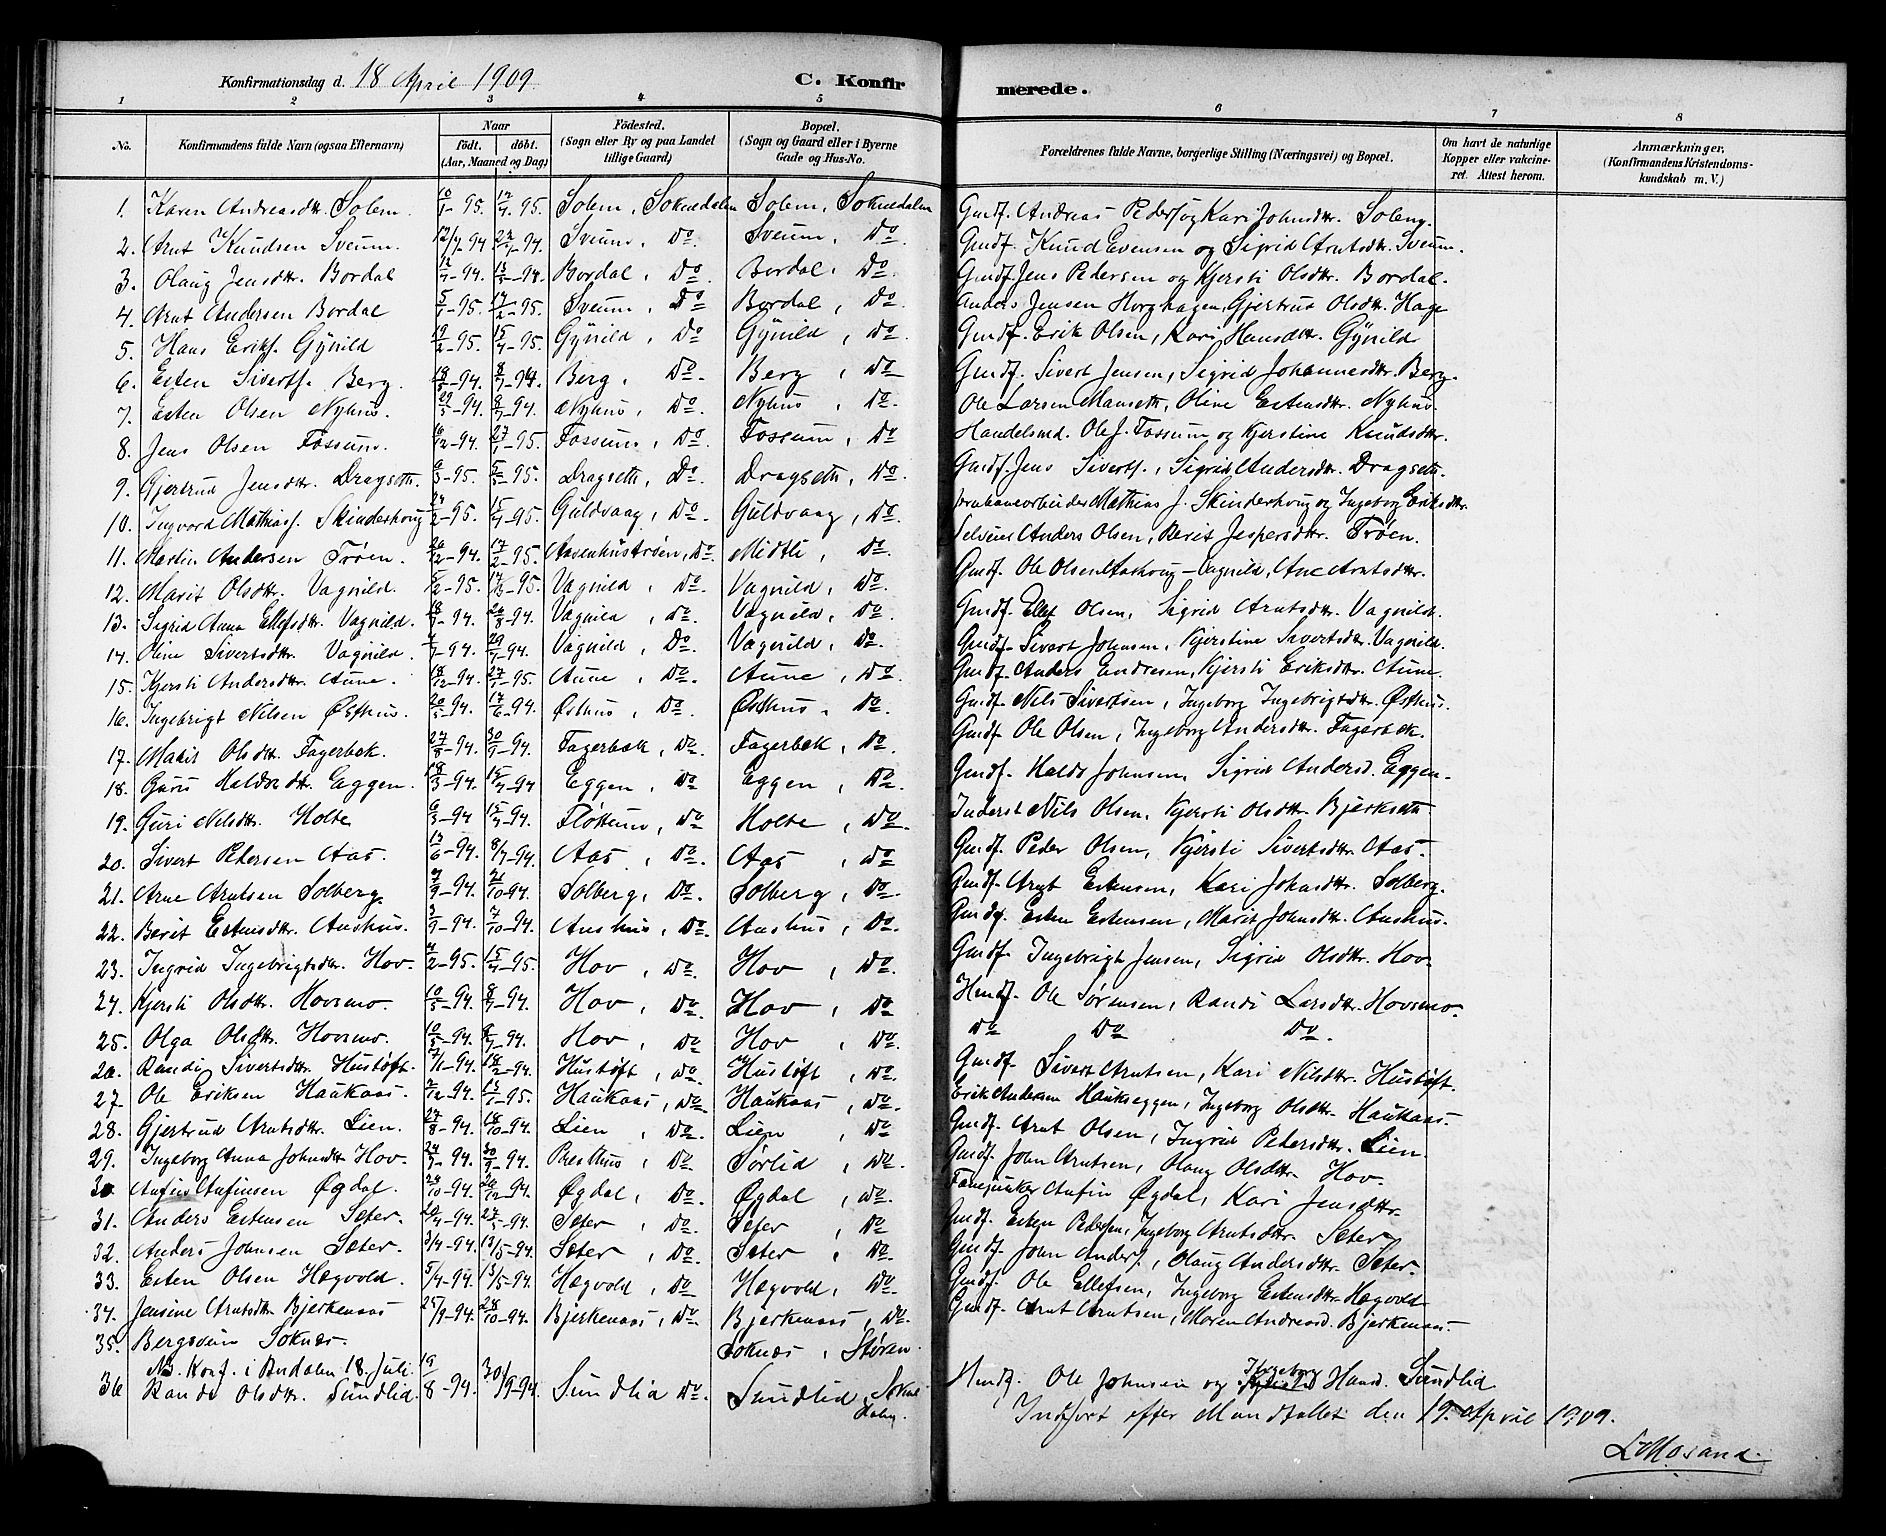 Konfirmationsdag d. 18 April 1909. C. Konfirmerede.
1 2 3 4 5 6 7 8
No. Konfirmandens fulde Navn (ogsaa Efternavn) Naar født. døbt. (Aar, Maaned og Dag) Fødested. (Sogn eller By og paa Landet tillige Gaard) Bopæl. (Sogn og Gaard eller i Byerne Gade og Hus-No. Forældrenes fulde Navne, borgerlige Stilling (Næringsvei) og Bopæl. Om havt de naturlige Kopper eller vakcineret. Attest herom. Anmærkninger. (Konfirmandens Kristendomskundskab m. V.)
1. Karen Andreasdtr. Solem. 95. 95. Solem, Soknedalen Solem, Soknedalen Gmdf. Andreas Peders. og Kari Johnsdtr. Solem.
2. Arnt Knudsen Sveum. 12/7 94 94. Sveum, Do Sveum, Do. Gmdf. Knud Evensen og Sigrid Arntsdtr. Sveum.
3. Olaug Jensdtr. Bordal 94. 94. Bordal, Do Bordal, Do. Gmdf. Jens Pedersen og Kjersti Olsdtr. Bordal.
4. Arnt Andersen Bordal 95. 95. Sveum, Do Bordal, Do Anders Jensen Horghagen, Gjertrud Olsdtr. Hage
5. Hans Eriks. Gynild 19/2-95. 15/4-95. Gynild, Do Gynild, Do. Gmdf. Erik Olsen, Kari Hansdtr. Gynild
6. Esten Siverts. Berg. 94. 8/7-94. Berg, Do. Berg, Do Gmdf. Sivert Jensen, Sigrid Johannesdtr. Berg.
7. Esten Olsen Nyhus. 29/5-94. 8/7-94. Nyhus, Do. Nyhus, Do. Ole Larsen Mansett, Oline Estensdtr. Nyhus.
8. Jens Olsen Fossum. 94. 27/1-95. Fossum, Do. Fossum, Do Handelsmd. Ole J. Fossum og Kjerstine Knudsdtr.
9. Gjertrud Jensdtr. Dragseth. 95. 95. Dragseth, Do. Dragseth, Do. Gmdf. Jens Siverts., Sigrid Andersdtr. Dragseth.
10. Ingvord Mathias. Skinderhoug 95. 15/4-95. Guldvaag, Do. Guldvaag, Do. Jernbanearbeider Mathias J. Skinderhoug og Ingeborg Eriksdtr.
11. Martin Andersen Trøen. 94. 17/2-95. Aasenhustrøen, Do Midtli, Do. Selveier Anders Olsen, Berit Jespersdtr. Trøen.
12. Marit Olsdtr. Vagnild. 95. 95. Vagnild, Do Vagnild, Do. Gmdf. Ole Olsen Aashoug-Vagnild, Ane Arntsdtr.
13. Sigrid Anna Ellefsdtr. Vagnild. 94. 26/8-94. Vagnild, Do. Vagnild, Do. Gmdf. Ellef Olsen, Sigrid Arntsdtr. Vagnild.
14. Oline Sivertsdtr. Vagnild. 94. 29/7-94. Vagnild, Do. Vagnild, Do. Gmdf. Sivert Johnsen, Kjerstine Sivertsdtr. Vagnild.
15. Kjersti Andersdtr. Aune. 18/12-94. 27/1-95. Aune, Do. Aune, Do. Gmdf. Anders Endresen, Kjersti Eriksdtr. Aune.
16. Ingebrigt Nilsen Østhus. 20/5-94. 17/6-94. Østhus, Do. Østhus, Do. Gmdf. Nils Sivertsen, Ingeborg Ingebrigtsdtr. Østhus.
17. Marit Olsdtr. Fagerbæk. 27/8-94. 30/9-94. Fagerbæk, Do. Fagerbæk, Do. Gmdf. Ole Olsen, Ingeborg Andersdtr. Fagerbæk.
18. Guri Haldosdtr. Eggen. 94. 15/4-94 Eggen, Do Eggen, Do. Gmdf. Haldo Johnsen, Sigrid Andersd. Eggen.
19. Guri Nilsdtr. Holte 6/3-94 15/4-94. Fløttum, Do Holte, Do. Inderst Nils Olsen, Kjersti Olsdtr. Bjerkseth
20. Sivert Petersen Aas. 13/6-94. 8/7-94. Aas, Do. Aas, Do Gmdf. Peder Olsen, Kjersti Sivertsdtr. Aas.
21. Arne Arntsen Solberg. 94. 21/10-94. Solberg, Do. Solberg, Do. Gmdf. Arnt Estensen, Kari Johnsdtr. Solberg.
22. Berit Estensdtr. Aushus. 3/9-94. 7/10-94. Aushus, Do. Aushus, Do. Gmdf. Esten Estensen, Marit Johnsdtr. Aushus.
23. Ingrid Ingebrigtsdtr. Hov. 95. 15/4-95. Hov, Do. Hov, Do. Gmdf. Ingebrigt Jensen, Sigrid Olsdtr. Hov.
24. Kjersti Olsdtr. Hovsmo. 10/5-94. 8/7-94. Hov, Do. Hov, Do Hmdf. Ole Sørensen, Randi Larsdtr. Hovsmo.
25. Olga Olsdtr. Hovsmo. 10/5-94. 8/7-94. Hov, Do Hov, Do. Do Do Do.
26. Randi Sivertsdtr. Hustøft. 94. 18/2-94. Hustøft, Do. Hustøft, Do. Gmdf. Sivert Arntsen, Kari Nilsdtr. Hustøft.
27. Ole Eriksen Haukaas. 94. 13/1-95. Haukaas, Do. Haukaas, Do. Erik Andersen Haukseggen, Ingeborg Olsdtr. Haukaas.
28. Gjertrud Arntsdtr. Lien. 27/8-94. 94. Lien, Do. Lien, Do Gmdf. Arnt Olsen, Ingrid Pedersdtr. Lien.
29. Ingeborg Anna Johnsdtr Hov. 94. 30/9-94. Presthus, Do. Sørlid, Do. Gmdf. John Arntsen, Olaug Olsdtr. Hov.
30. Anfin Anfinsen Øgdal. 94. 26/12-94. Øgdal, Do. Øgdal, Do. Fanejunker Anfin Øgdal, Kari Jensdtr.
31. Anders Estensen Sæter. 20/4-94. 27/5-94. Sæter, Do. Sæter, Do Gmdf. Esten Pedersen, Ingeborg Arntsdtr. Sæter,
32. Anders Johnsen Sæter. 3/4-94. 13/5-94. Sæter, Do. Sæter, Do. Gmdf. John Anders., Olaug Andersdtr. Sæter.
33. Esten Olsen Hægvold. 5/4-94. 13/5-94. Hægvold, Do Hægvold, Do. Gmdf. Ole Ellefsen, Ingeborg Estensdtr. Hægvold
34. Jensine Arntsdtr. Bjerkenaas 25/9-94. 28/10-94. Bjerkenaas, Do. Bjerkenaas, Do. Gmdf. Arnt Arntsen, Maren Andreasd. Bjerkenaas.
35. Bergsvein Soknæs. Soknæs, Støren.
NB. Konf. i Budalen 18. Juli
36 Randi Olsdtr. Sundlid. 19/8-94. 30/9-94. Sundlid Do. Sundlid, Soknedalen. Hmdf. Ole Johnsen og Ingeborg Hansd. Sundlid
Indført efter Mandtallet den 19. April 1909.